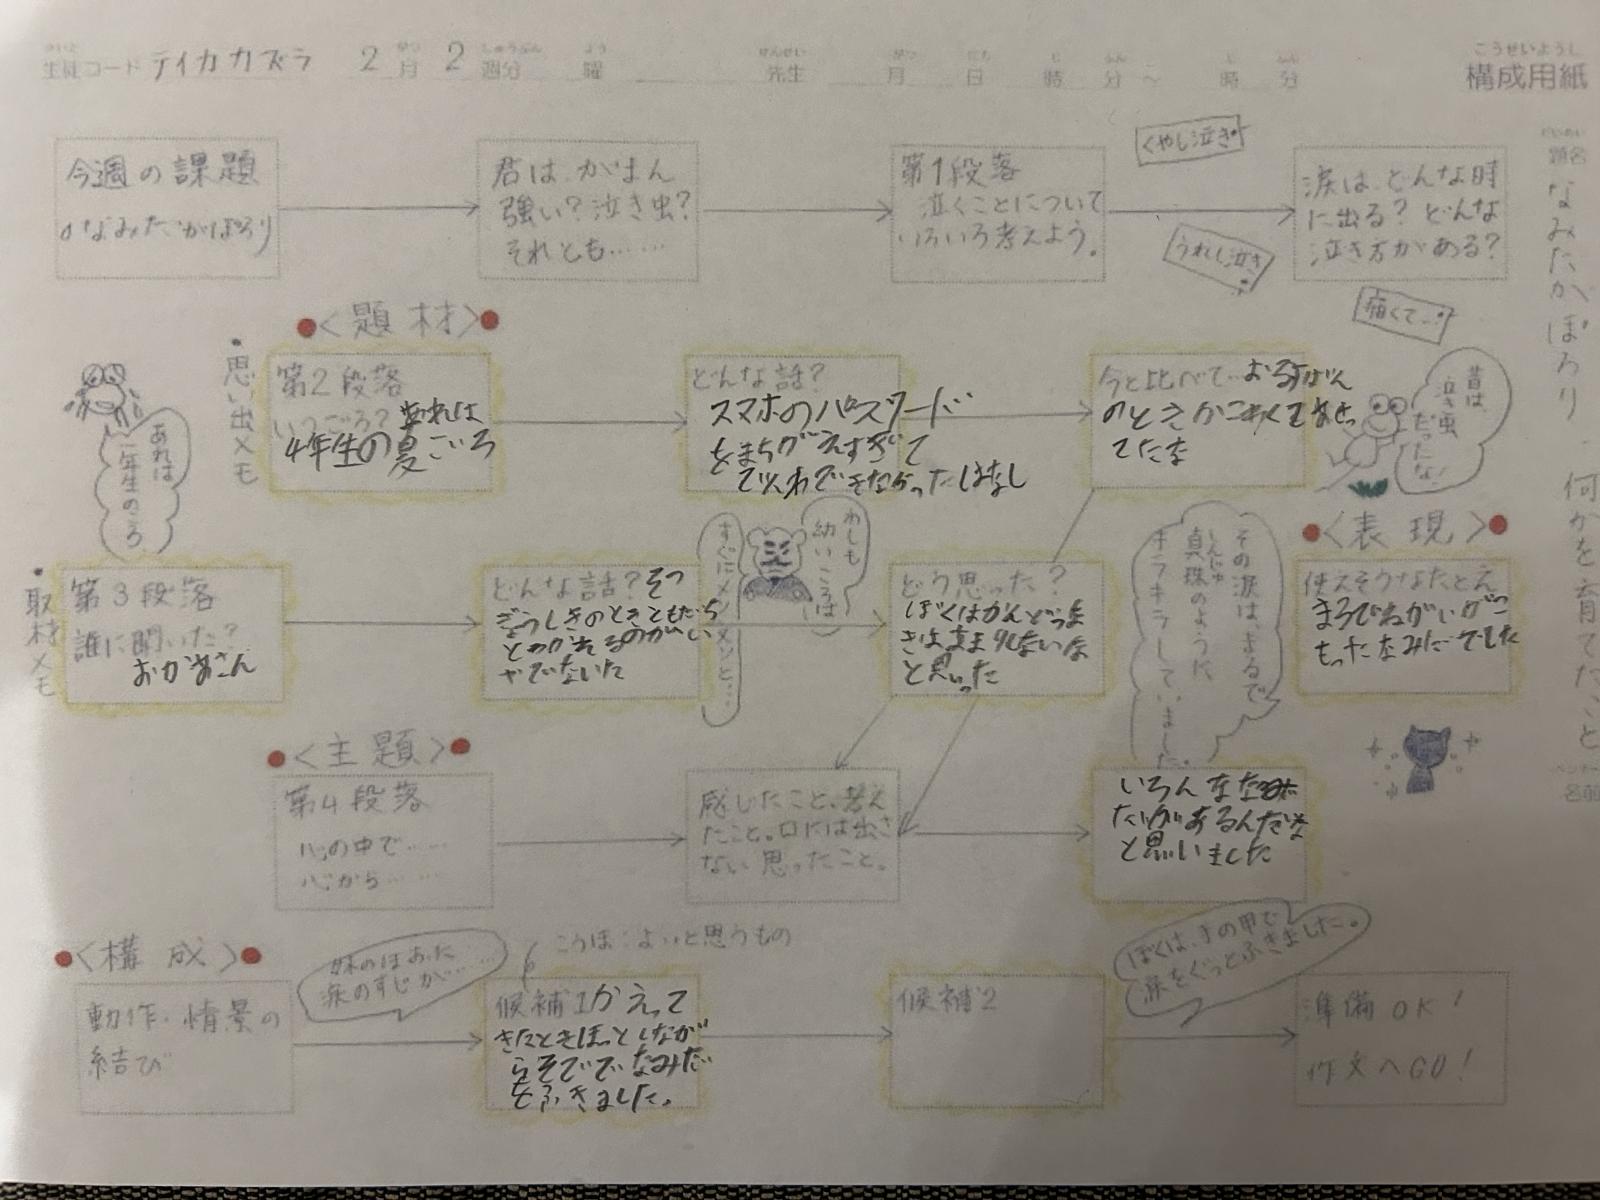 せいと がつ しゅうぶん よう せんせい がつ にち じ ふん じ ふん
生徒コード テイカカズラ 2月 2週分 曜 先生 月 日 時 分 〜 時 分
こうせいようし
構成用紙
だいめい
題名
なみだがぽろり、何かを育てたこと
名前
今週の課題
○なみだがぽろり
君は、がまん
強い？泣き虫？
それとも……
第1段落
泣くことについて
いろいろ考えよう。
くやし泣き
うれし泣き
痛くて…
涙は、どんな時
に出る？どんな
泣き方がある？
<題材>
・思い出メモ
あれは
一年生のころ
第2段落
いつごろ？あれは
4年生の夏ごいろ
どんな話？
スマホのパスワード
をまちがえすぎて
でんわできなかったはなし
今と比べて…おるすばん
のときかこわくてあせっ
てたな
昔は、
泣き虫
だったな！
・取材メモ
第3段落
誰に聞いた？
おかあさん
どんな話？そつ
ぎょうしきのときともだち
とわかれるのがい
やでないた
わしも
幼いころは
すぐにメソメソと…
どう思った？
ぼくはかんどうな
きはまままれないな
と思いった
その涙は、まるで
しんじゅ
真珠のように
キラキラしていました。
<表現>
使えそうなたとえ
まるでねがいがこ
もったなみだでした
<主題>
第4段落
心の中で……
心から……
感じたこと、考え
たこと。口には出さ
ない思ったこと。
いろんななみ
だがあるんだな
と思いました
<構成>
動作・情景の
結び
妹のほおに
涙のすじが……
こうほ：よいと思うもの
候補1かえって
きたときほっとしなが
らそででなみだ
をふきました。
候補2
ぼくは、手の甲で
涙をぐっとふきました。
準備OK！
作文へGO！